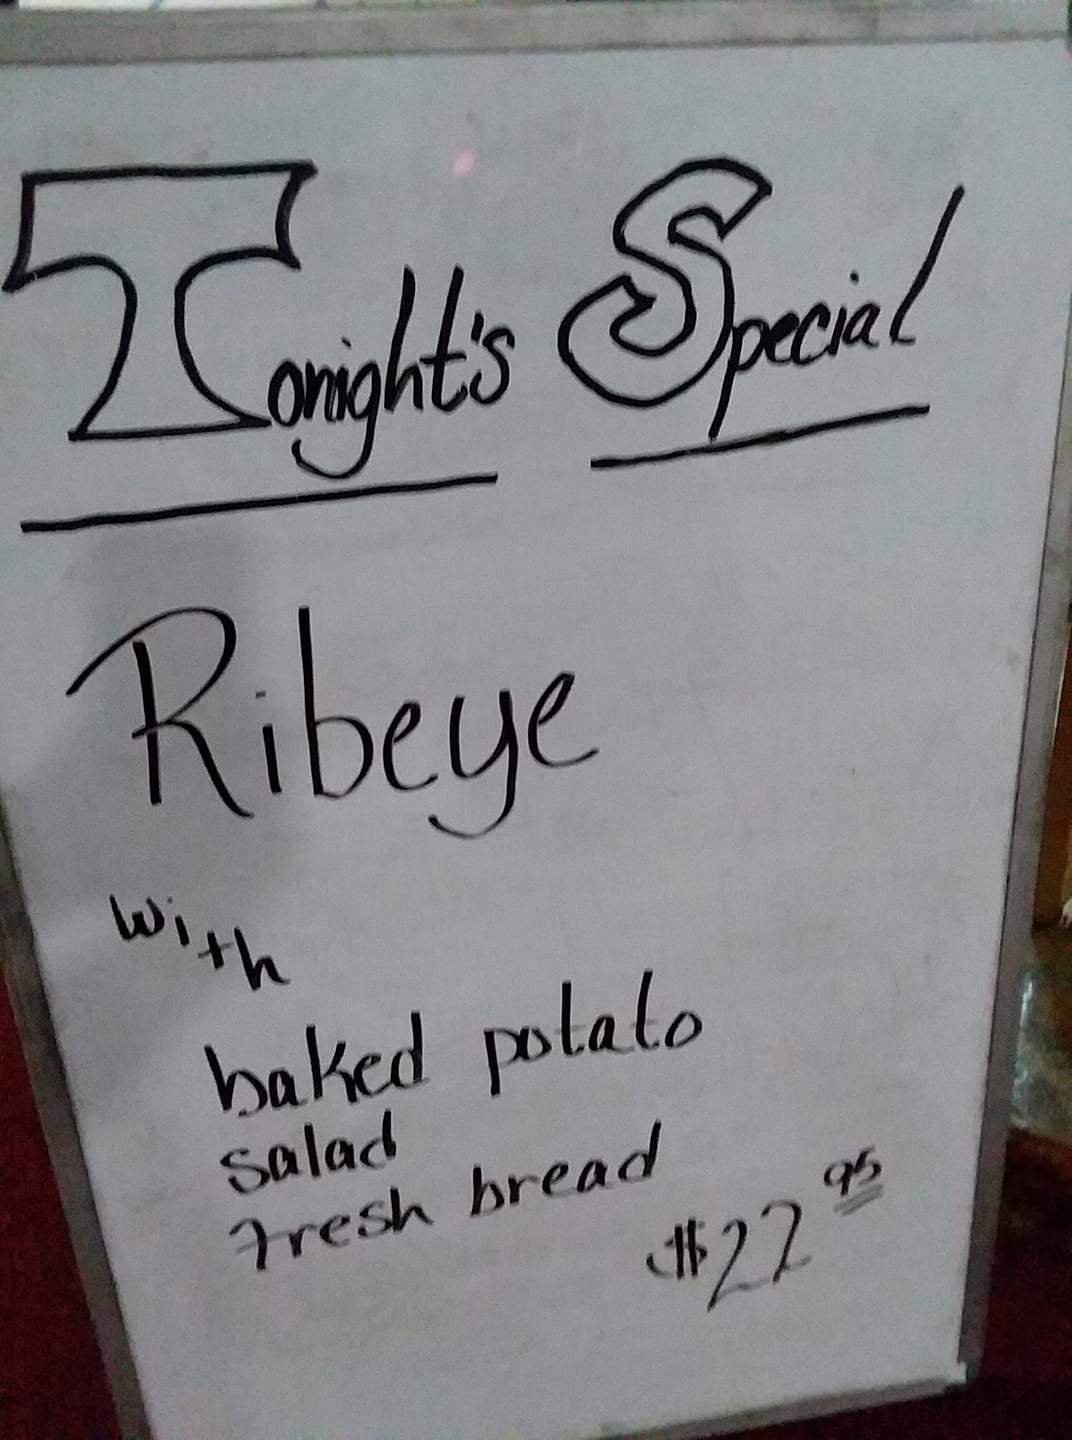 Tonight's Special
Ribeye
with
baked potato
salad
fresh bread
$22 95